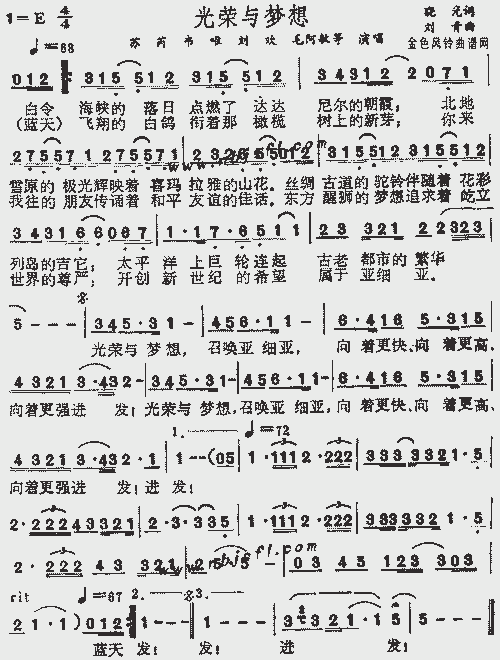 光荣与梦想
1=E 4/4
晓光词
刘青曲
♩=68
苏芮 韦唯 刘欢 毛阿敏等 演唱
金色风铃曲谱网
012 315 512 315 512 34312 2071
白令 海峡的 落日 点燃了 达达 尼尔的朝霞; 北地
(蓝天) 飞翔的 白鸽 衔着那 橄榄 树上的新芽; 你来
雪原的 极光辉映着 喜玛 拉雅的山花。丝绸 古道的 驼铃伴随着 花彩
我往的 朋友传诵着 和平 友谊的佳话。东方 醒狮的 梦想追求着 屹立
34316 66067 1·17·6 511 23 321 22323
列岛的吉它; 太平 洋 上巨 轮连起 古老 都市的 繁华
世界的尊严; 开创 新 世纪的 希望 属于 亚细 亚。
5--- 345·31- 456·11- 6·416 5·315
光荣与 梦想, 召唤亚 细亚, 向 着更快、向 着更高、
4321 3·432- 345·31- 456·11- 6·416 5·315
向着更强进 发; 光荣与 梦想,召唤亚 细亚, 向 着更快、向 着更高、
1. ♩=72
4321 3·432·1 1--(05 1·1112·222 3333321·5
向着更强进 发; 进 发;
2·22243321 2·3·335 1·1112·222 3333321·5
2·222 43 321 25 5- 03 45 123 303
rit ♩=67 2. 3.
21·1) 012 1--- 1--
蓝天 发; 发; 进 发;